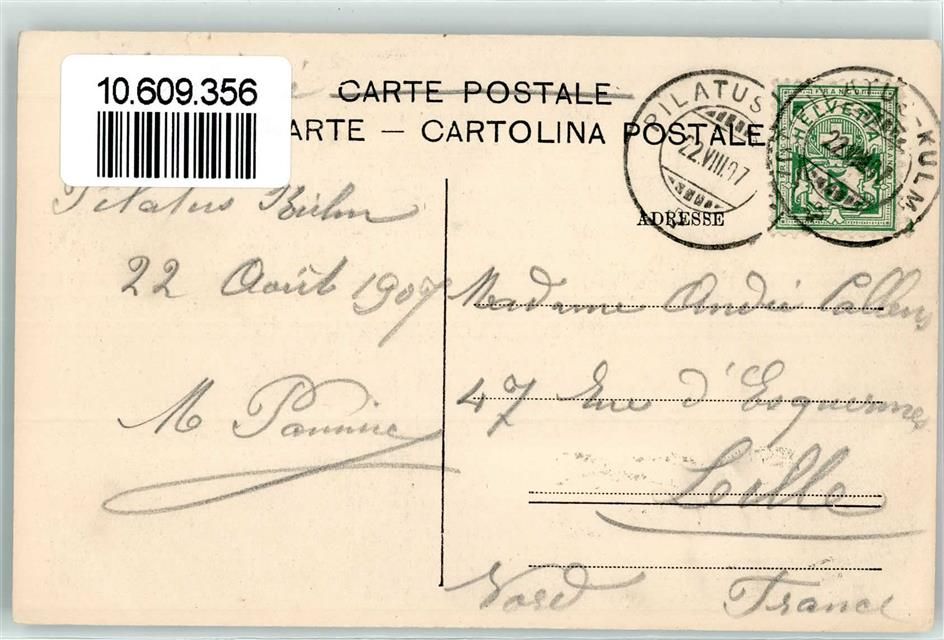 10.609.356
CARTE POSTALE
ARTE — CARTOLINA POSTALE
PILATUS
22.VIII.07
KULM
FRANCO
HELVETIA
ADRESSE
Pilatus Kulm
22 Août 1907
M
Madame André Callens
47 Rue d'Esquermes
Lille
Nord France